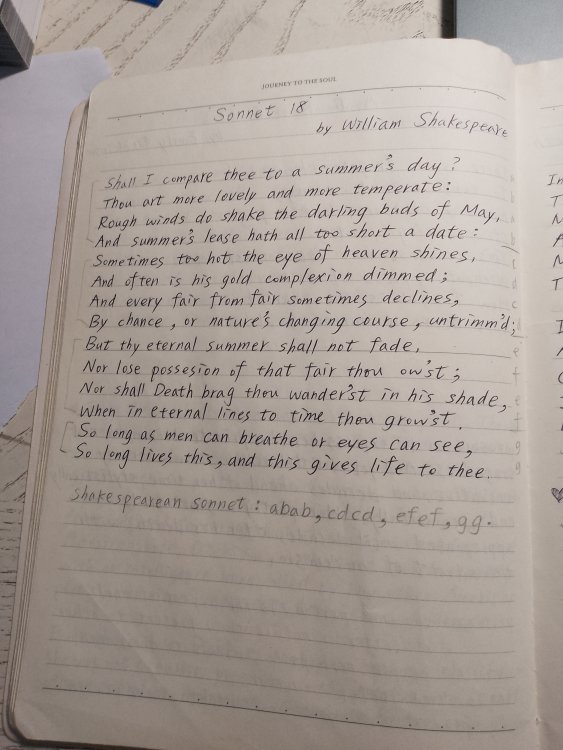 JOURNEY TO THE SOUL
Sonnet 18
by William Shakespeare
Shall I compare thee to a summer's day?
Thou art more lovely and more temperate:
Rough winds do shake the darling buds of May,
And summer's lease hath all too short a date:
Sometimes too hot the eye of heaven shines,
And often is his gold complexion dimmed;
And every fair from fair sometimes declines,
By chance, or nature's changing course, untrimm'd;
But thy eternal summer shall not fade,
Nor lose possesion of that fair thou ow'st;
Nor shall Death brag thou wander'st in his shade,
When in eternal lines to time thou grow'st.
So long as men can breathe or eyes can see,
So long lives this, and this gives life to thee.
Shakespearean sonnet: abab, cdcd, efef, gg.